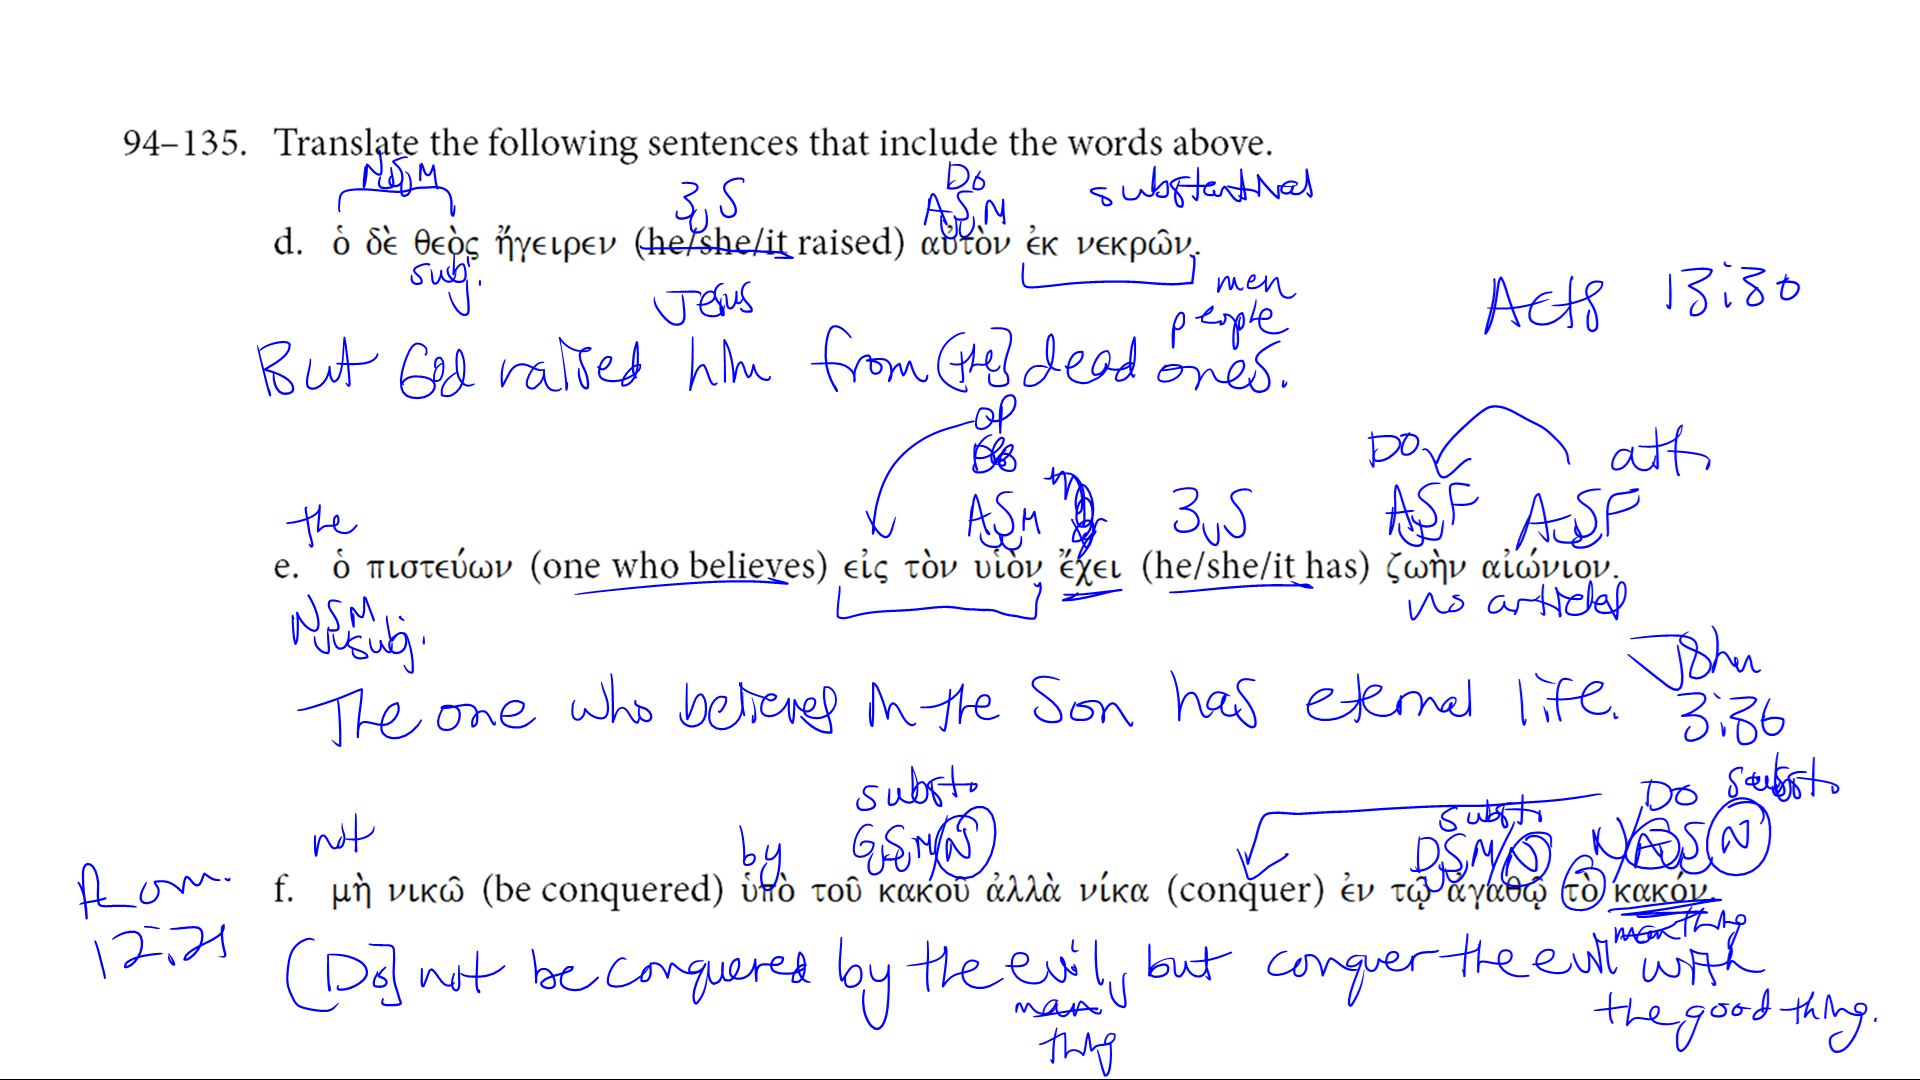 94–135. Translate the following sentences that include the words above.
NSM 3,S DO substantival
ASM
d. ὁ δὲ θεὸς ἤγειρεν (he/she/it raised) αὐτὸν ἐκ νεκρῶν.
subj. Jesus men
people Acts 13:30
But God raised him from [the] dead ones.
OP
DO att.
the ASM 3,S ASF ASF
e. ὁ πιστεύων (one who believes) εἰς τὸν υἱὸν ἔχει (he/she/it has) ζωὴν αἰώνιον.
NSM no articles
subj.
John
The one who believes in the Son has eternal life. 3:36
subst. subst. DO subst.
not by GSM/N DSM/N N/ASN
Rom. f. μὴ νικῶ (be conquered) ὑπὸ τοῦ κακοῦ ἀλλὰ νίκα (conquer) ἐν τῷ ἀγαθῷ τὸ κακόν.
12:21 man thing
[Do] not be conquered by the evil, but conquer the evil with
man the good thing.
thing